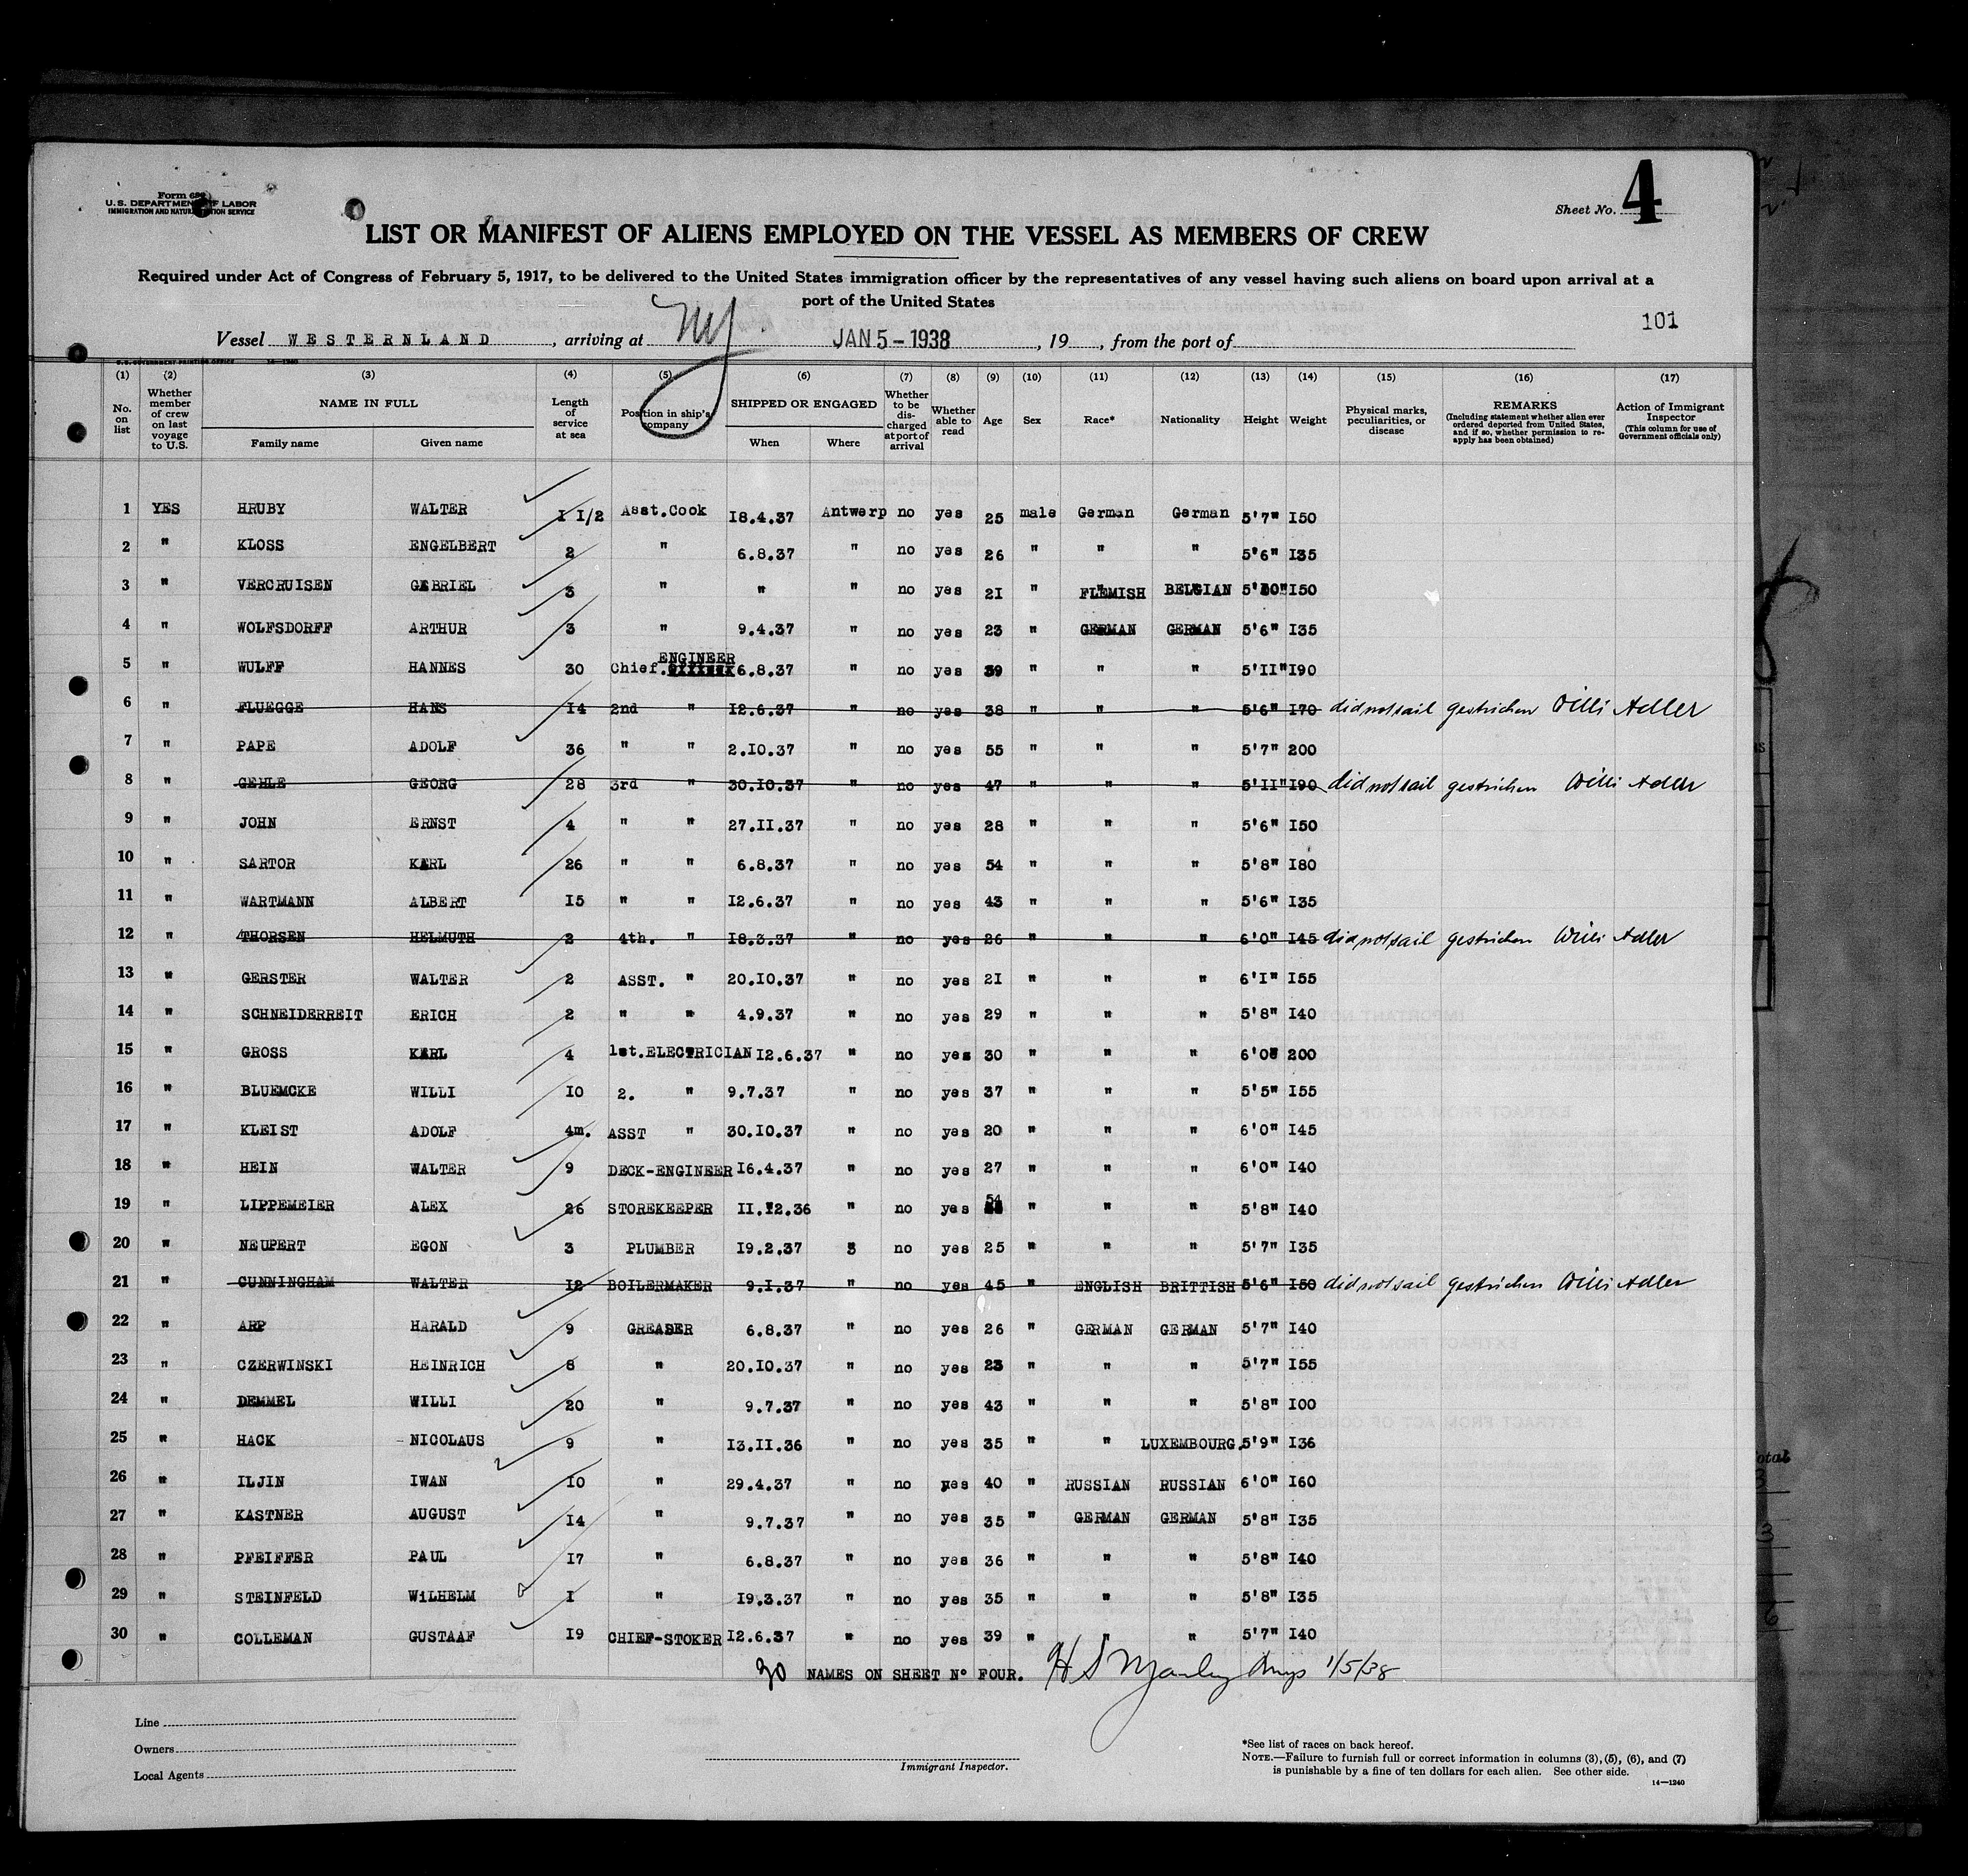 Form 689
U.S. DEPARTMENT OF LABOR
IMMIGRATION AND NATURALIZATION SERVICE
Sheet No. 4
LIST OR MANIFEST OF ALIENS EMPLOYED ON THE VESSEL AS MEMBERS OF CREW
Required under Act of Congress of February 5, 1917, to be delivered to the United States immigration officer by the representatives of any vessel having such aliens on board upon arrival at a
port of the United States
101
Vessel WESTERNLAND, arriving at NY JAN 5-1938, 19, from the port of
U.S. GOVERNMENT PRINTING OFFICE 14-1240
(1) (2) (3) (4) (5) (6) (7) (8) (9) (10) (11) (12) (13) (14) (15) (16) (17)
No. on list
Whether member of crew on last voyage to U.S.
NAME IN FULL
Family name Given name
Length of service at sea
Position in ship's company
SHIPPED OR ENGAGED
When Where
Whether to be discharged at port of arrival
Whether able to read
Age Sex Race* Nationality Height Weight
Physical marks, peculiarities, or disease
REMARKS
(Including statement whether alien ever ordered deported from United States, and if so, whether permission to reapply has been obtained)
Action of Immigrant Inspector
(This column for use of Government officials only)
1 YES HRUBY WALTER I I/2 Asst.Cook I8.4.37 Antwerp no yes 25 male German German 5'7" I50
2 " KLOSS ENGELBERT 2 " 6.8.37 " no yes 26 " " " 5'6" I35
3 " VERCRUISEN GABRIEL 3 " " " no yes 2I " FLEMISH BELGIAN 5'10" I50
4 " WOLFSDORFF ARTHUR 3 " 9.4.37 " no yes 23 " GERMAN GERMAN 5'6" I35
5 " WULFF HANNES 30 Chief. ENGINEER 6.8.37 " no yes 39 " " " 5'II" I90
6 " FLUEGGE HANS I4 2nd " I2.6.37 " no yes 38 " " " 5'6" I70 did not sail gestrichen Willi Adler
7 " PAPE ADOLF 36 " " 2.I0.37 " no yes 55 " " " 5'7" 200
8 " GEHLE GEORG 28 3rd " 30.I0.37 " no yes 47 " " " 5'II" I90 did not sail gestrichen Willi Adler
9 " JOHN ERNST 4 " " 27.II.37 " no yes 28 " " " 5'6" I50
10 " SARTOR KARL 26 " " 6.8.37 " no yes 54 " " " 5'8" I80
11 " WARTMANN ALBERT I5 " " I2.6.37 " no yes 43 " " " 5'6" I35
12 " THORSEN HELMUTH 2 4th. " I8.3.37 " no yes 26 " " " 6'0" I45 did not sail gestrichen Willi Adler
13 " GERSTER WALTER 2 ASST. " 20.I0.37 " no yes 2I " " " 6'I" I55
14 " SCHNEIDERREIT ERICH 2 " " 4.9.37 " no yes 29 " " " 5'8" I40
15 " GROSS KARL 4 1st.ELECTRICIAN I2.6.37 " no yes 30 " " " 6'0" 200
16 " BLUEMCKE WILLI I0 2. " 9.7.37 " no yes 37 " " " 5'5" I55
17 " KLEIST ADOLF 4m. ASST " 30.I0.37 " no yes 20 " " " 6'0" I45
18 " HEIN WALTER 9 DECK-ENGINEER I6.4.37 " no yes 27 " " " 6'0" I40
19 " LIPPEMEIER ALEX 26 STOREKEEPER II.I2.36 " no yes 54 " " " 5'8" I40
20 " NEUPERT EGON 3 PLUMBER I9.2.37 " no yes 25 " " " 5'7" I35
21 " CUNNINGHAM WALTER I2 BOILERMAKER 9.I.37 " no yes 45 " ENGLISH BRITTISH 5'6" I50 did not sail gestrichen Willi Adler
22 " ARP HARALD 9 GREASER 6.8.37 " no yes 26 " GERMAN GERMAN 5'7" I40
23 " CZERWINSKI HEINRICH 8 " 20.I0.37 " no yes 23 " " " 5'7" I55
24 " DEMMEL WILLI 20 " 9.7.37 " no yes 43 " " " 5'8" I00
25 " HACK NICOLAUS 9 " I3.II.36 " no yes 35 " " LUXEMBOURG. 5'9" I36
26 " ILJIN IWAN I0 " 29.4.37 " no yes 40 " RUSSIAN RUSSIAN 6'0" I60
27 " KASTNER AUGUST I4 " 9.7.37 " no yes 35 " GERMAN GERMAN 5'8" I35
28 " PFEIFFER PAUL I7 " 6.8.37 " no yes 36 " " " 5'8" I40
29 " STEINFELD WiLHELM I " I9.3.37 " no yes 35 " " " 5'8" I35
30 " COLLEMAN GUSTAAF I9 CHIEF-STOKER I2.6.37 " no yes 39 " " " 5'7" I40
30 NAMES ON SHEET Nº FOUR. H S Manley 1/5/38
Line
Owners
Local Agents
Immigrant Inspector.
*See list of races on back hereof.
NOTE.—Failure to furnish full or correct information in columns (3), (5), (6), and (7)
is punishable by a fine of ten dollars for each alien. See other side.
14—1240